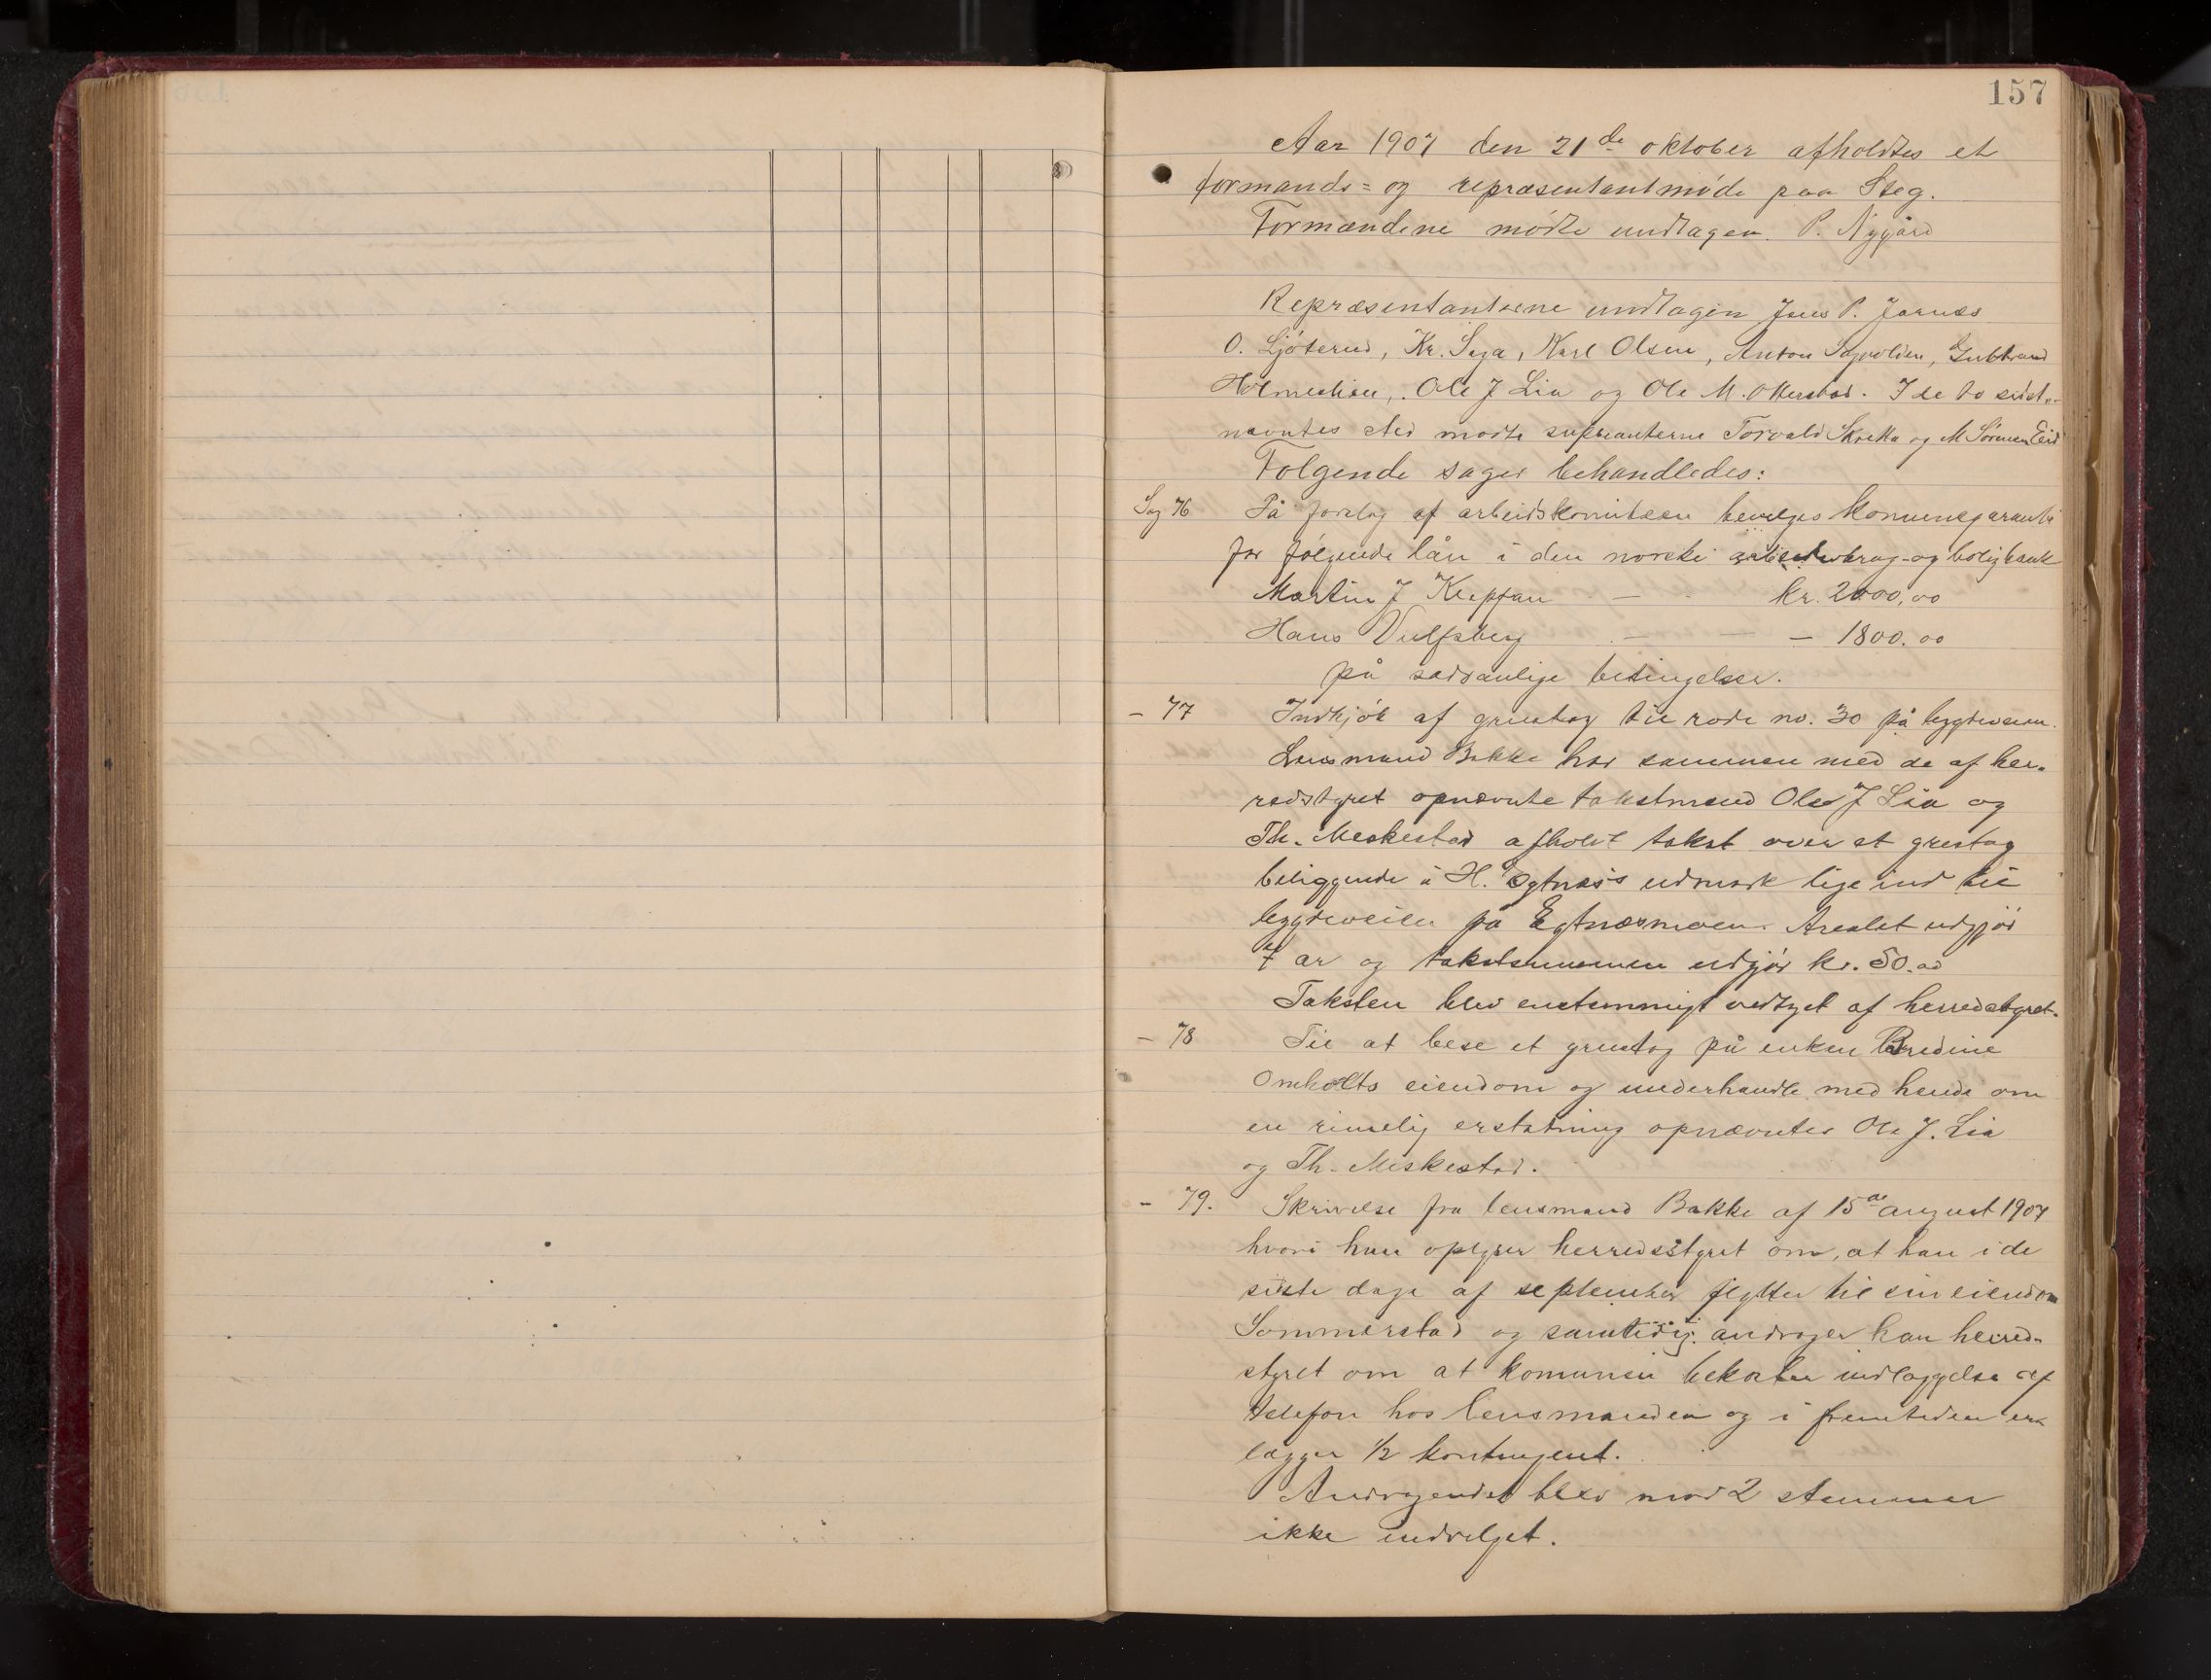 157
Aar 1907 den 21de oktober afholdtes et
formands= og repræsentantmøde paa Steg.
Formændene mødte undtagen P. Nygård
Repræsentanterne undtagen Jens P. Jarnæs
O. Ljøterud, Kr. Saga, Karl Olsen, Anton Sagvolden, Gulbrand
Holmeslien, Ole J Lia og Ole M. Otterstad. I de to sidst-
nævntes sted mødte supleanterne Torvald Skretta og M Sørensen Eid
Følgende sager behandledes:
Sag 76 På forslag af arbeidskomiteen bevilges kommunegaranti
for følgende lån i den norske arbeiderbrug- og boligbank
Martin J Klepfan — kr. 2000,00
Hans Vulfsberg — — — 1800.00
på sædvanlige betingelser.
— 77 Indkjøb af grustag til rode no. 30 på bygdeveien.
Lensmand Bakke har sammen med de af her-
redstyret opnævnte takstmænd Ole J Lia og
Th. Meskestad afholdt takst over et grustag
beliggende i H. Egtnæs's udmark lige ind til
bygdeveien på Egtnæsmoen. Arealet udgjør
4 ar og takstsummen udgjør kr. 50.00
Taksten blev enstemmigt vedtget af herredstyret.
— 78 Til at bese et grustag på enken Bredine
Omholts eiendom og underhandle med hende om
en rimelig erstatning opnævntes Ole J. Lia
og Th. Meskestad.
- 79. Skrivelse fra lensmand Bakke af 15de august 1907
hvori han oplyser herredsstyret om, at han i de
siste dage af september flytter til sin eiendom
Sommerstad og samtidig andrager han herred-
styret om at komunen bekoster indlæggelse af
telefon hos lensmanden og i fremtiden er-
lægger 1/2 kontingent.
Andragendet blev mod 2 stemmer
ikke indvilget.